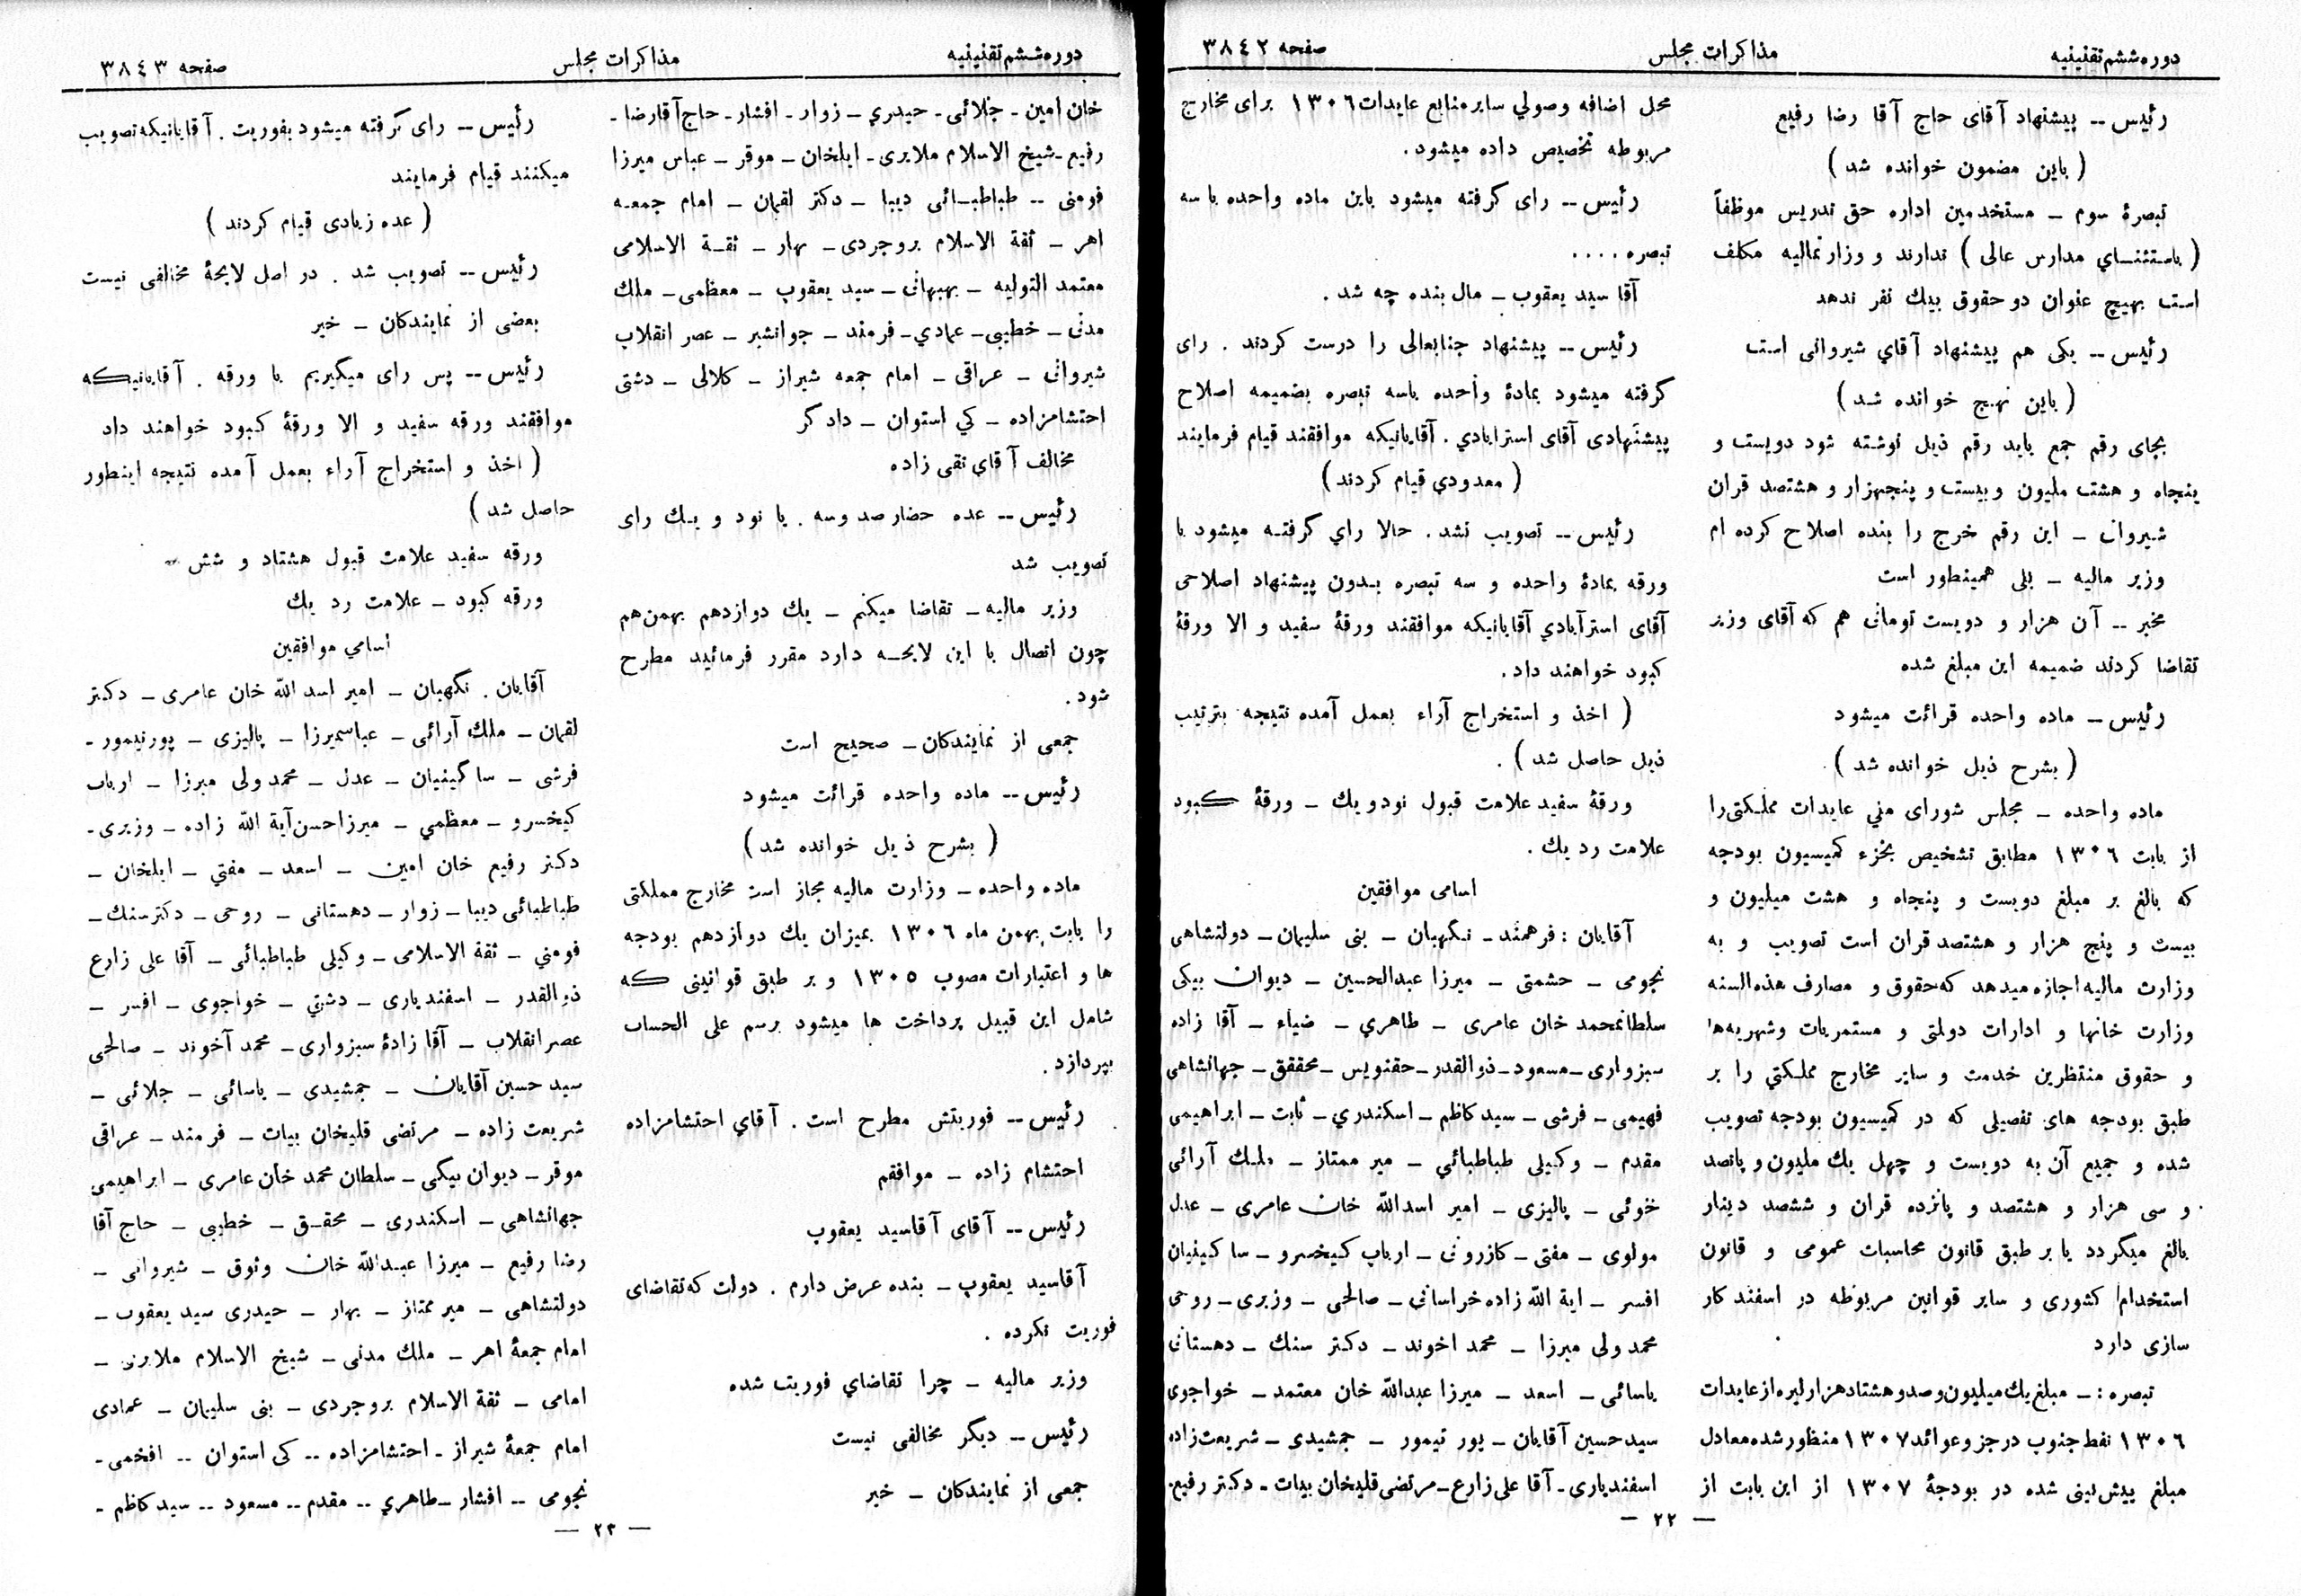 دوره ششم تقنینیه
مذاکرات مجلس
صفحه ۳۸٤۲
رئیس -- پیشنهاد آقای حاج آقا رضا رفیع
( باین مضمون خوانده شد )
تبصرهٔ سوم ـ مستخدمین اداره حق تدریس موظفاً
( باستثنـــای مدارس عالی ) ندارند و وزارتمالیه مکلف
است بهیچ عنوان دو حقوق بیك نفر ندهد
رئیس -- یکی هم پیشنهاد آقاي شیروانی است
( باین نهـج خوانده شـد )
بجای رقم جمع باید رقم ذیل نوشته شود دویست و
پنجاه و هشت ملیون و بیست و پنجهزار و هشتصد قران
شیروانی ـ این رقم خرج را بنده اصلاح کرده ام
وزیر مالیه ـ بلی همینطور است
مخبر -- آن هزار و دویست تومانی هم که آقای وزیر
تقاضا کردند ضمیمه این مبلغ شده
رئیس ـ ماده واحده قرائت میشود
( بشرح ذیل خوانده شد )
ماده واحده ـ مجلس شورای ملي عایدات مملـکتی را
از بابت ۱۳۰٦ مطابق تشخیص بخزء کمیسیون بودجه
که بالغ بر مبلغ دویست و پنجاه و هشت میلیون و
بیست و پنج هزار و هشتصد قران است تصویب و به
وزارت مالیه اجازه میدهد که حقوق و مصارف هذه السنه
وزارت خانها و ادارات دولتی و مستمریات و شهریه ها
و حقوق منتظرین خدمت و سایر مخارج مملـکتي را بر
طبق بودجه های تفصیلی که در کمیسیون بودجه تصویب
شده و جمیع آن به دویست و چهل یك ملیون و پانصد
و سی هزار و هشتصد و پانزده قران و ششصد دینار
بالغ میگردد یا بر طبق قانون محاسبات عمومی و قانون
استخدام کشوری و سایر قوانین مربوطه در اسفند کار
سازی دارد
تبصره : ـ مبلغ یك میلیون و صدو هشتاد هزار لیره از عایدات
۱۳۰٦ نفط جنوب در جزو عوائد ۱۳۰۷ منظور شده معادل
مبلغ پیش بینی شده در بودجهٔ ۱۳۰۷ از این بابت از
محل اضافه وصولي سایر منابع عایدات ۱۳۰٦ برای مخارج
مربوطه تخصیص داده میشود .
رئیس -- رای گرفته میشود باین ماده واحده با سه
تبصره . . . .
آقا سید یعقوب ـ مال بنده چه شد .
رئیس -- پیشنهاد جنابعالی را درست کردند . رای
گرفته میشود بمادهٔ واحده باسه تبصره بضمیمه اصلاح
پیشنهادی آقای استرابادي . آقایانیکه موافقند قیام فرمایند
( معدودي قیام کردند )
رئیس -- تصویب نشد . حالا رای گرفتـه میشود با
ورقه بمادهٔ واحده و سه تبصره بـدون پیشنهاد اصلاحی
آقای استرآبادي آقایانیکه موافقند ورقهٔ سفید و الا ورقهٔ
کبود خواهند داد .
( اخذ و استخراج آراء بعمل آمده نتیجه بترتیب
ذیل حاصل شد ) .
ورقهٔ سفید علامت قبول نودو یك ـ ورقهٔ کبود
علامت رد یك .
اسامی موافقین
آقایان : فرهمند ـ نـگهبان ـ بنی سلیمان ـ دولتشاهی
نجومی ـ حشمتی ـ میرزا عبدالحسین ـ دیوان بیکی
سلطانمحمد خان عامری ـ طاهري ـ ضیاء ـ آقا زاده
سبزواری ـ مسعود ـ ذوالقدر ـ حقنویس ـ محققق ـ جهانشاهی
فهیمی ـ فرشی ـ سید کاظم ـ اسکندري ـ ثابت ـ ابراهیمی
مقدم ـ وکیلی طباطبائي ـ میر ممتاز ـ ملـك آرائی
خوئی ـ پالیزی ـ امیر اسدالله خان عامری ـ عدل
مولوی ـ مفتی ـ کازرونی ـ ارباب کیخسرو ـ ساکینیان
افسر ـ ایة الله زاده خراسانی ـ صالحی ـ وزیری ـ روحی
محمد ولی میرزا ـ محمد اخوند ـ دکتر سنك ـ دهستانی
یاسائی ـ اسعد ـ میرزا عبدالله خان معتمد ـ خواجوی
سید حسین آقایان ـ پور تیمور ـ جمشیدی ـ شریعت زاده
اسفندیاری ـ آقا علی زارع ـ مرتضی قلیخان بیات ـ دکتر رفیع
— ۲۲ —
دوره ششم تقنینیه
مذاکرات مجلس
صفحه ۳۸٤۳
خان امین ـ جلائی ـ حیدري ـ زوار ـ افشار ـ حاج آقا رضا ـ
رفیع ـ شیخ الاسلام ملایری ـ ایلخان ـ موقر ـ عباس میرزا
فومنی -- طباطبـائی دیبا ـ دکتر لقمان ـ امام جمعـه
اهر ـ ثقة الاسلام بروجردی ـ بهار ـ ثقـة الاسلامی
معتمد التولیه ـ بهبهانی ـ سید یعقوب ـ معظمی ـ ملك
مدنی ـ خطیبی ـ عمادي ـ فرمند ـ جوانشیر ـ عصر انقلاب
شیروانی ـ عراقی ـ امام جمعه شیراز ـ کلالی ـ دشتی
احتشامزاده ـ کي استوان ـ دادگر
مخالف آقاي تقی زاده
رئیس -- عده حضار صد وسه . با نود و یـك رای
تصویب شد
وزیر مالیه ـ تقاضا میکنم ـ یك دوازدهم بهمن هم
چون اتصال با این لایحـه دارد مقرر فرمائید مطرح
شود .
جمعی از نمایندکان ـ صحیح است
رئیس -- ماده واحده قرائت میشود
( بشرح ذیل خوانده شد )
ماده واحده ـ وزارت مالیه مجاز است مخارج مملکتی
را بابت بهمن ماه ۱۳۰٦ بمیزان یك دوازدهم بودجه
ها و اعتبارات مصوب ۱۳۰٥ و بر طبق قوانینی که
شامل این قبیل پرداخت ها میشود برسم علی الحساب
بپردازد .
رئیس -- فوریتش مطرح است . آقاي احتشامزاده
احتشام زاده ـ موافقم
رئیس -- آقای آقاسید یعقوب
آقاسید یعقوب ـ بنده عرض دارم . دولت که تقاضای
فوریت نکرده .
وزیر مالیه ـ چرا تقاضاي فوریت شده
رئیس -- دیگر مخالفی نیست
جمعی از نمایندکان ـ خیر
رئیس -- رای گرفته میشود بفوریت . آقایانیکه تصویب
میکنند قیام فرمایند
( عده زیادی قیام کردند )
رئیس -- تصویب شد . در اصل لایحهٔ مخالفی نیست
بعضی از نمایندکان ـ خیر
رئیس -- پس رای میگیریم با ورقه . آقایانیـکه
موافقند ورقه سفید و الا ورقهٔ کبود خواهند داد
( اخذ و استخراج آراء بعمل آمده نتیجه اینطور
حاصل شد )
ورقه سفید علامت قبول هشتاد و شش
ورقه کبود ـ علامت رد یك
اسامي موافقین
آقایان . نگهبان ـ امیر اسد الله خان عامری ـ دکتر
لقمان ـ ملك آرائی ـ عباسمیرزا ـ پالیزی ـ پورتیمور ـ
فرشی ـ ساکینیان ـ عدل ـ محمد ولی میرزا ـ ارباب
کیخسرو ـ معظمي ـ میرزاحسن آیة الله زاده ـ وزیری ـ
دکتر رفیع خان امین ـ اسعد ـ مفتي ـ ایلخان ـ
طباطبائی دیبا ـ زوار ـ دهستانی ـ روحی ـ دکترسنك ـ
فومني ـ ثقة الاسلامی ـ وکیلی طباطبائی ـ آقا علی زارع
ذوالقدر ـ اسفندیاری ـ دشتي ـ خواجوی ـ افسر ـ
عصرانقلاب ـ آقا زادهٔ سبزواری ـ محمد آخوند ـ صالحی
سید حسین آقایان ـ جمشیدی ـ یاسائی ـ جلائی ـ
شریعت زاده ـ مرتضی قلیخان بیات ـ فرمند ـ عراقی
موقر ـ دیوان بیگی ـ سلطان محمد خان عامری ـ ابراهیمی
جهانشاهی ـ اسکندری ـ محقـق ـ خطیبی ـ حاج آقا
رضا رفیع ـ میرزا عبـدالله خان وثوق ـ شیروانی ـ
دولتشاهی ـ میر ممتاز ـ بهار ـ حیدری سید یعقوب ـ
امام جمعهٔ اهر ـ ملك مدنی ـ شیخ الاسلام ملایری ـ
امامی ـ ثقة الاسلام بروجردی ـ بنی سلیمان ـ عمادی
امام جمعهٔ شیراز ـ احتشامزاده -- کی استوان -- افخمی ـ
نجومی -- افشار ـ طاهري -- مقدم -- مسعود -- سید کاظم ـ
— ۲۳ —